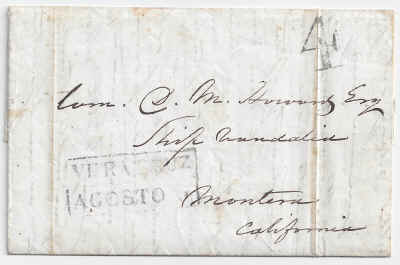 4
Com. D. M. Howard Esq
Ship Vandalia
VERACRUZ
AGOSTO
Montera
California